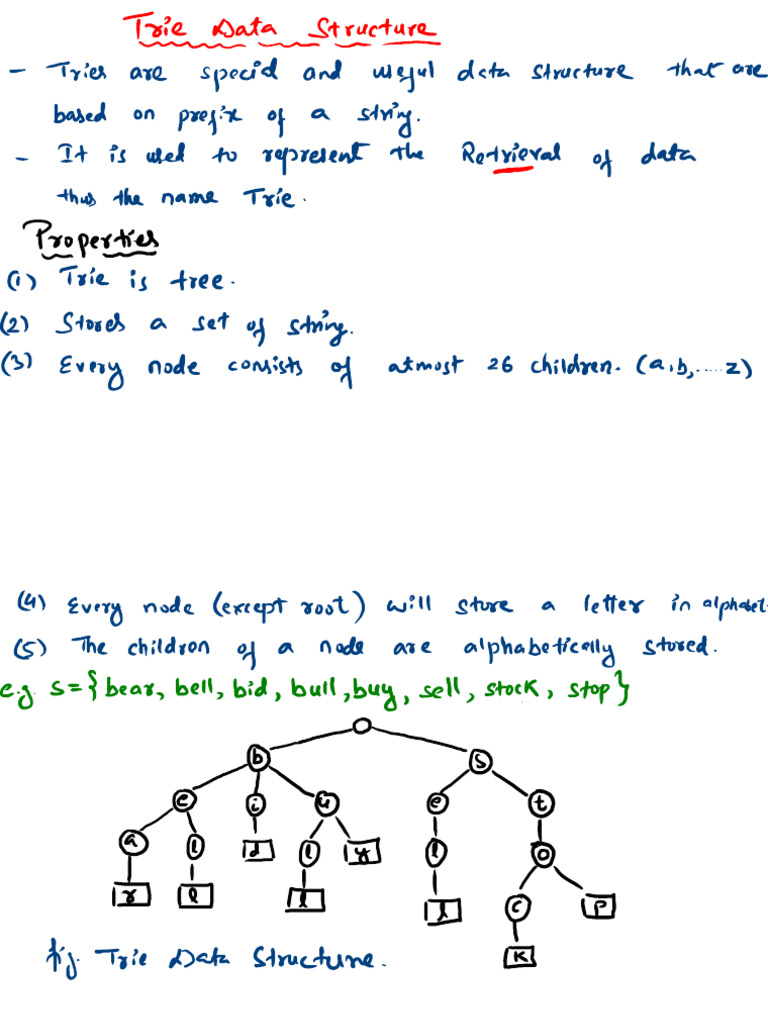 Trie Data Structure
- Tries are special and useful data structure that are
based on prefix of a string.
- It is used to represent the Retrieval of data
thus the name Trie.
Properties
(1) Trie is tree.
(2) Stores a set of string.
(3) Every node consists of atmost 26 children. (a,b,.....z)
(4) Every node (except root) will store a letter in alphabet.
(5) The children of a node are alphabetically stored.
e.g. S={bear, bell, bid, bull, buy, sell, stock, stop}
b s
e i u e t
a l d l y l o
r l l l c p
k
fig. Trie Data Structure.